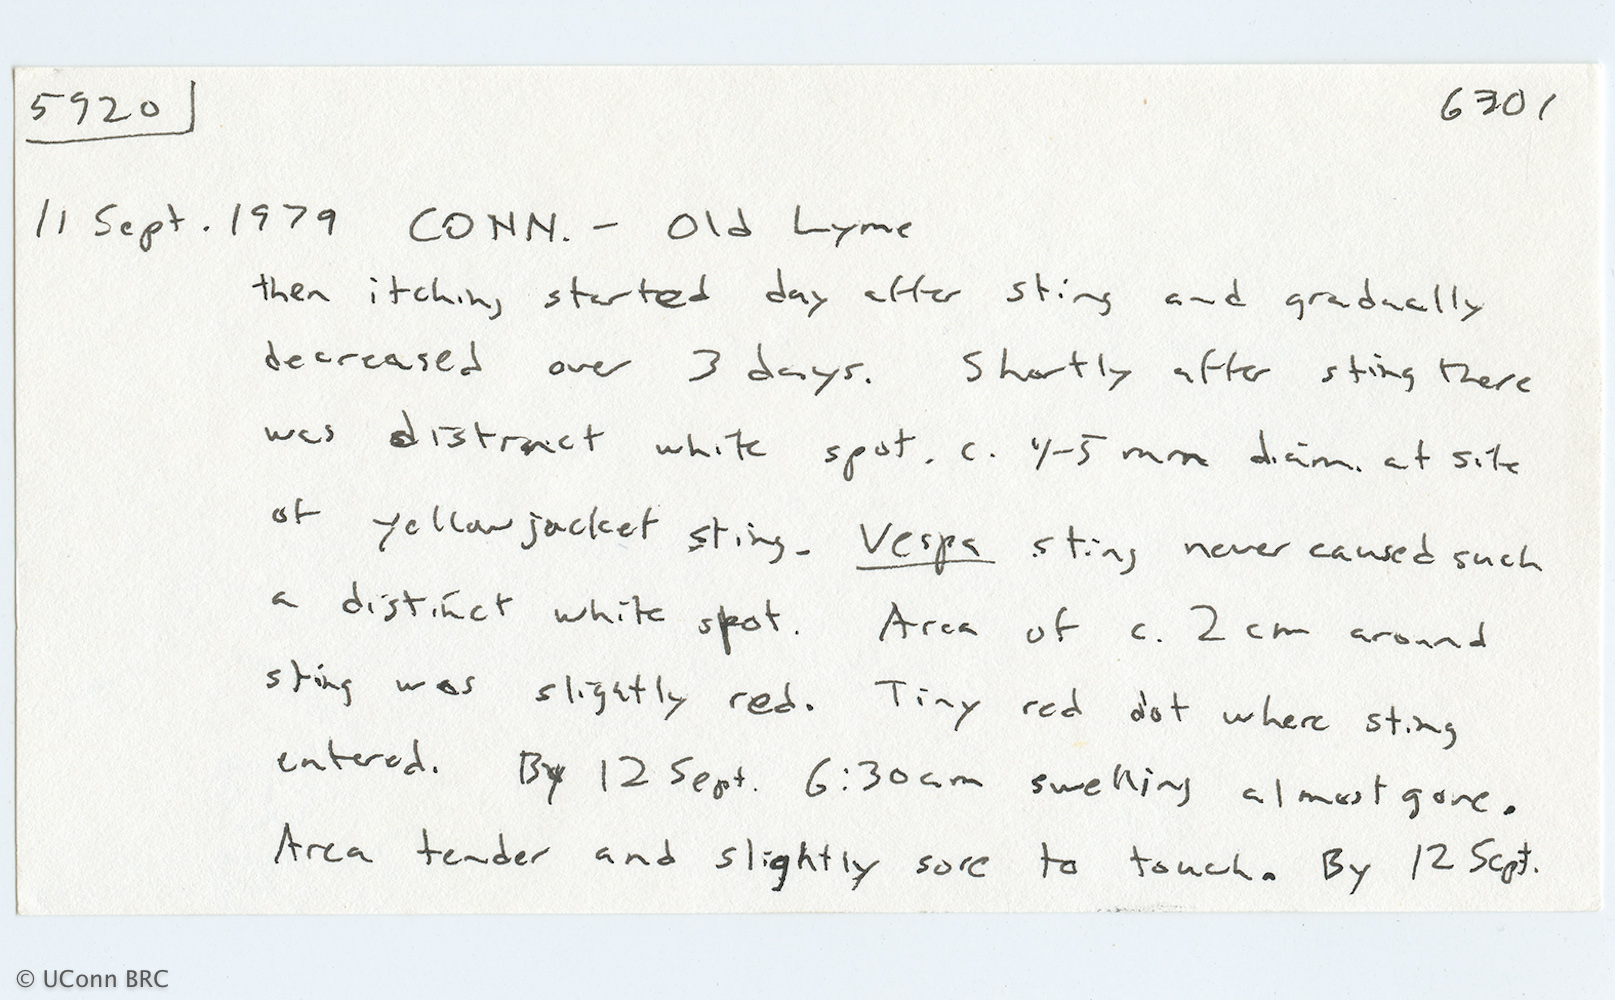 5920 6301
11 Sept. 1979 CONN. - Old Lyme
then itching started day after sting and gradually
decreased over 3 days. Shortly after sting there
was distinct white spot. c. 4-5 mm diam. at site
of yellowjacket sting. Vespa sting never caused such
a distinct white spot. Area of c. 2 cm around
sting was slightly red. Tiny red dot where sting
entered. By 12 Sept. 6:30am swelling almost gone.
Area tender and slightly sore to touch. By 12 Sept.
© UConn BRC